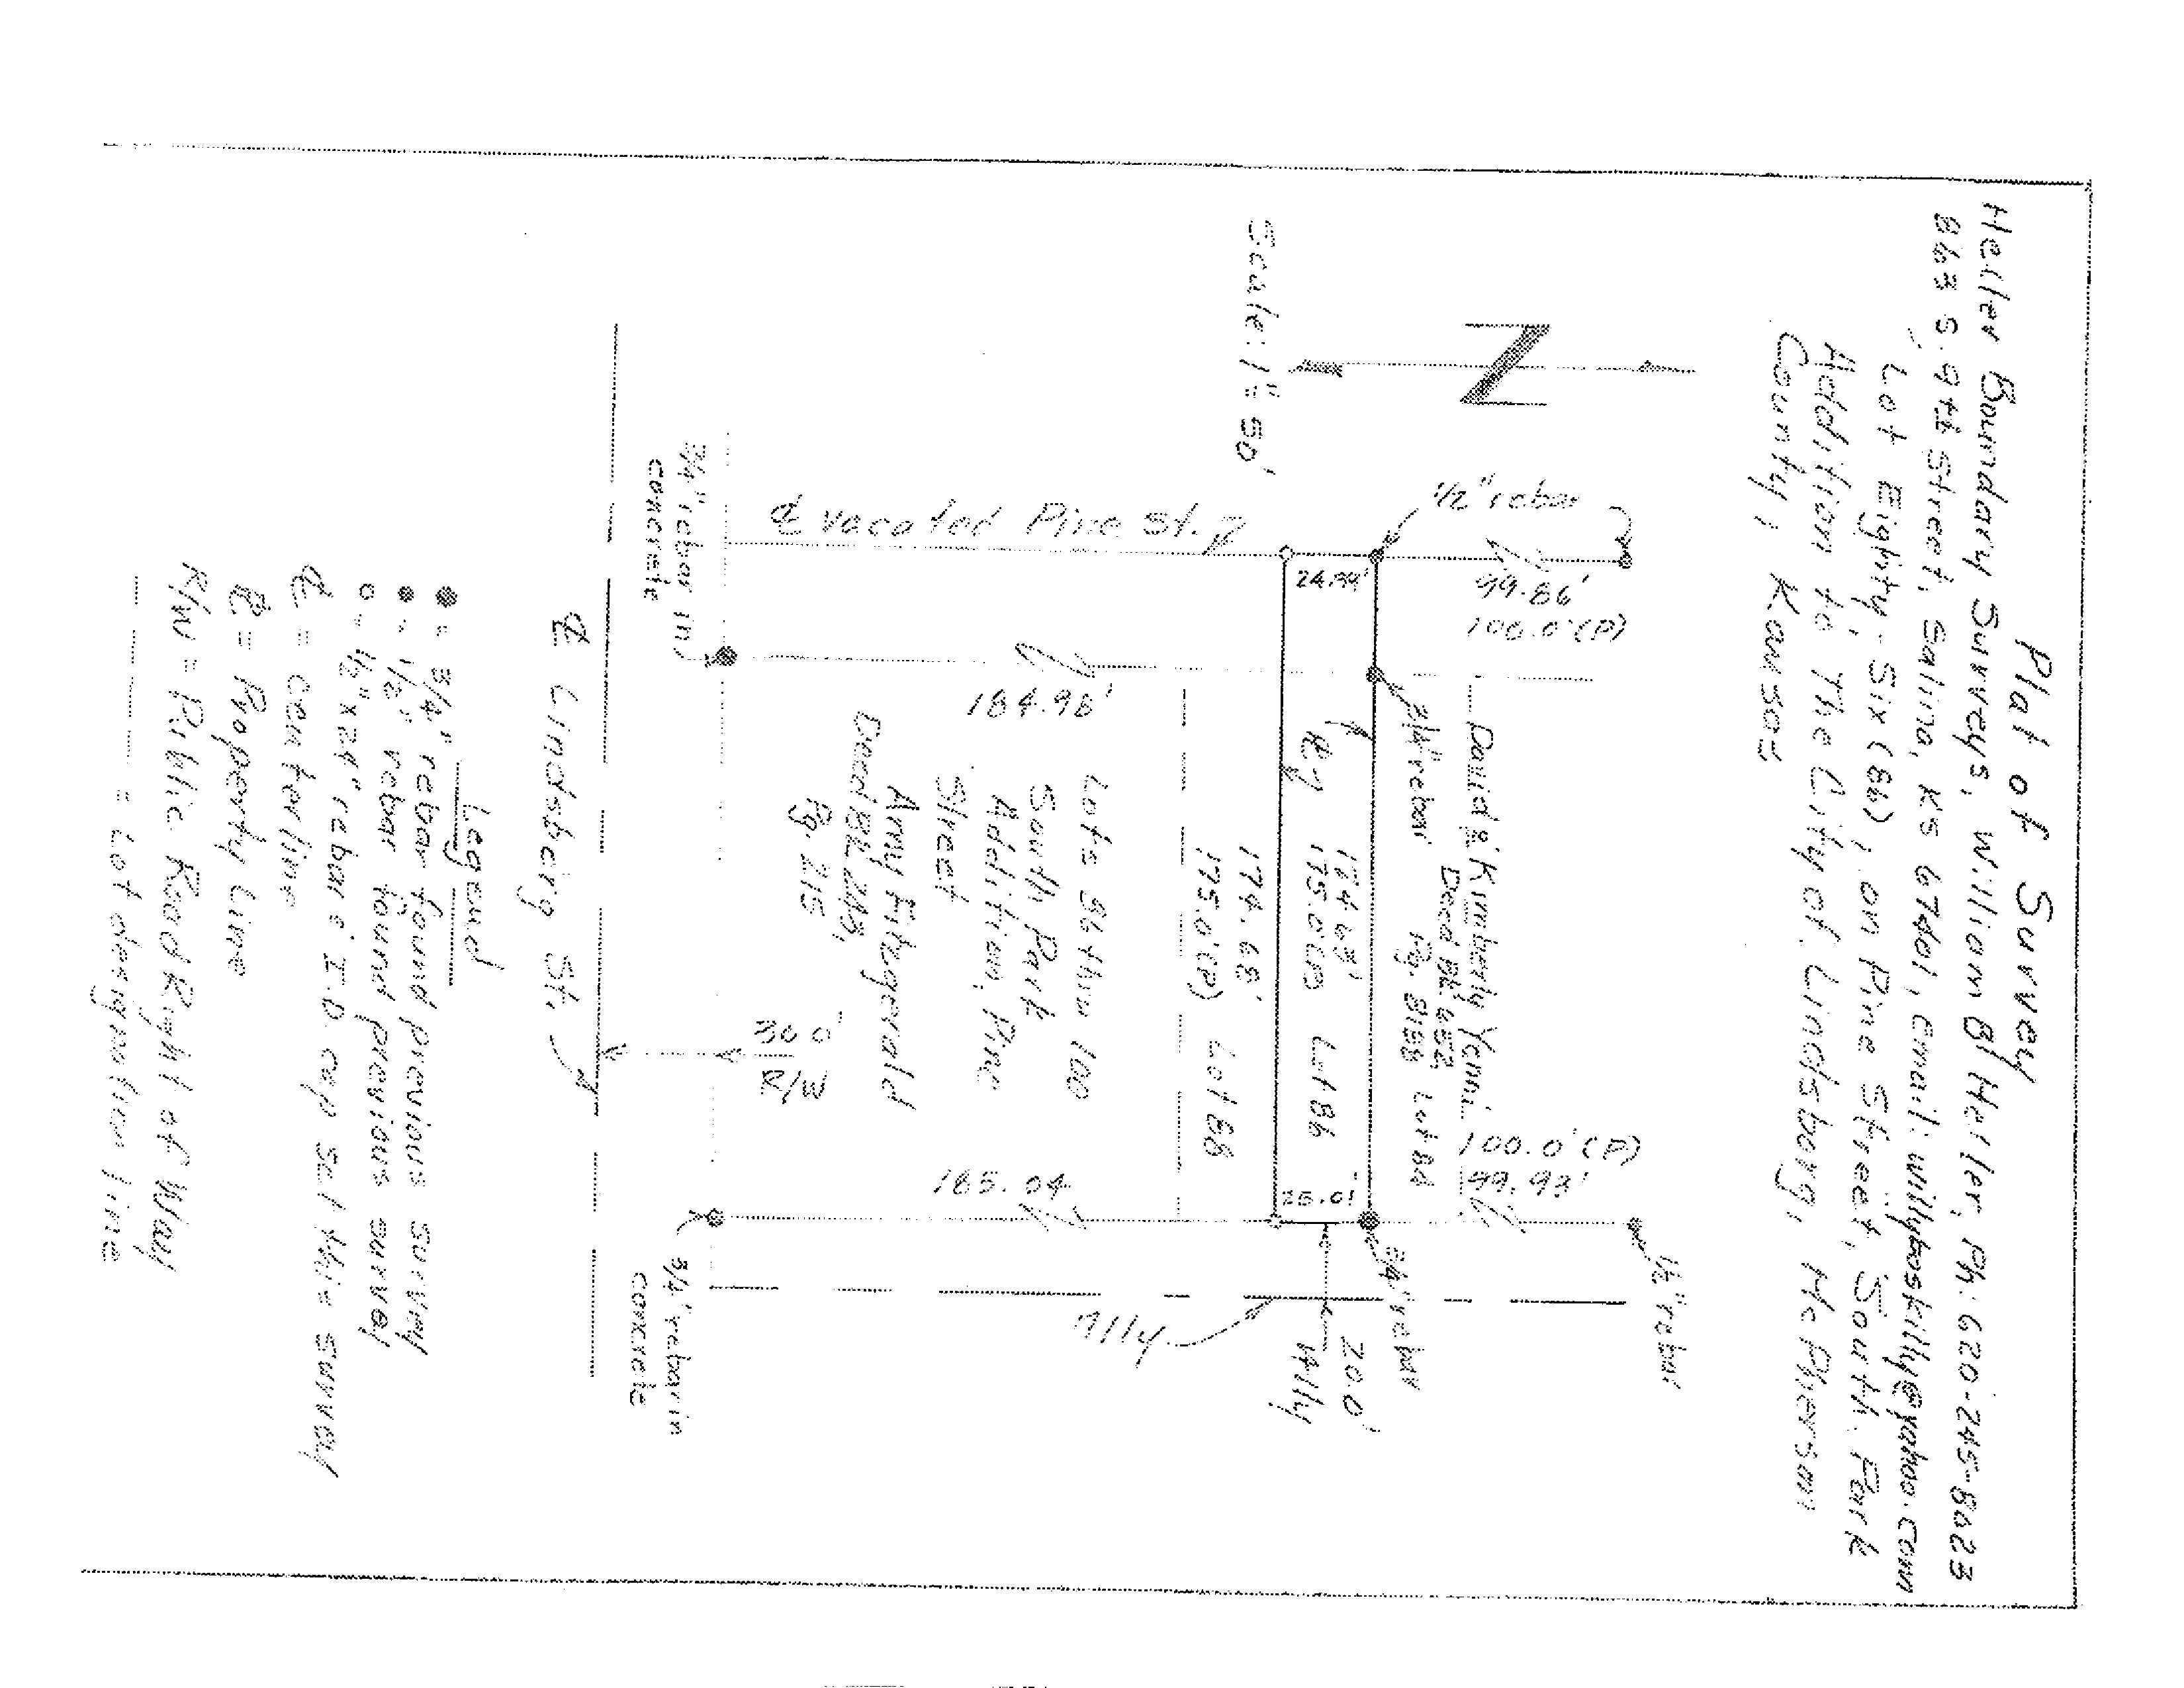 Plat of Survey
Heller Boundary Surveys, William B. Heller, Ph: 620-245-8023
863 S. 9th Street, Salina, KS 67401, email: willyboskilly@yahoo.com
Lot Eighty-Six (86), on Pine Street, South Park
Addition to The City of Lindsborg, McPherson
County, Kansas
Scale: 1" = 50'
N
1/2" rebar
99.86'
100.0' (P)
24.99'
℄ vacated Pine St.
3/4" rebar in
concrete
184.98'
3/4" rebar
David & Kimberly Yanni
Deed Bk
Lot 84
174.63'
Lot 86
174.68'
175.0'(P) Lot 88
Lots 86 thru 100
South Park
Addition, Pine
Street
Amy Fitzgerald
Deed Bk 243,
Pg. 215
100.0' (P)
99.93'
25.01'
185.04
3/4" rebar
1/2" rebar
20.0'
Ally
Ally
30.0'
R/W
3/4" rebar in
concrete
℄ Lindsborg St.
Legend
● = 3/4" rebar found previous survey
● = 1/2" rebar found previous survey
○ = 1/2" x 24" rebar & I.D. cap set this survey
℄ = centerline
= Property Line
R/W = Public Road Right of Way
= Lot designation line